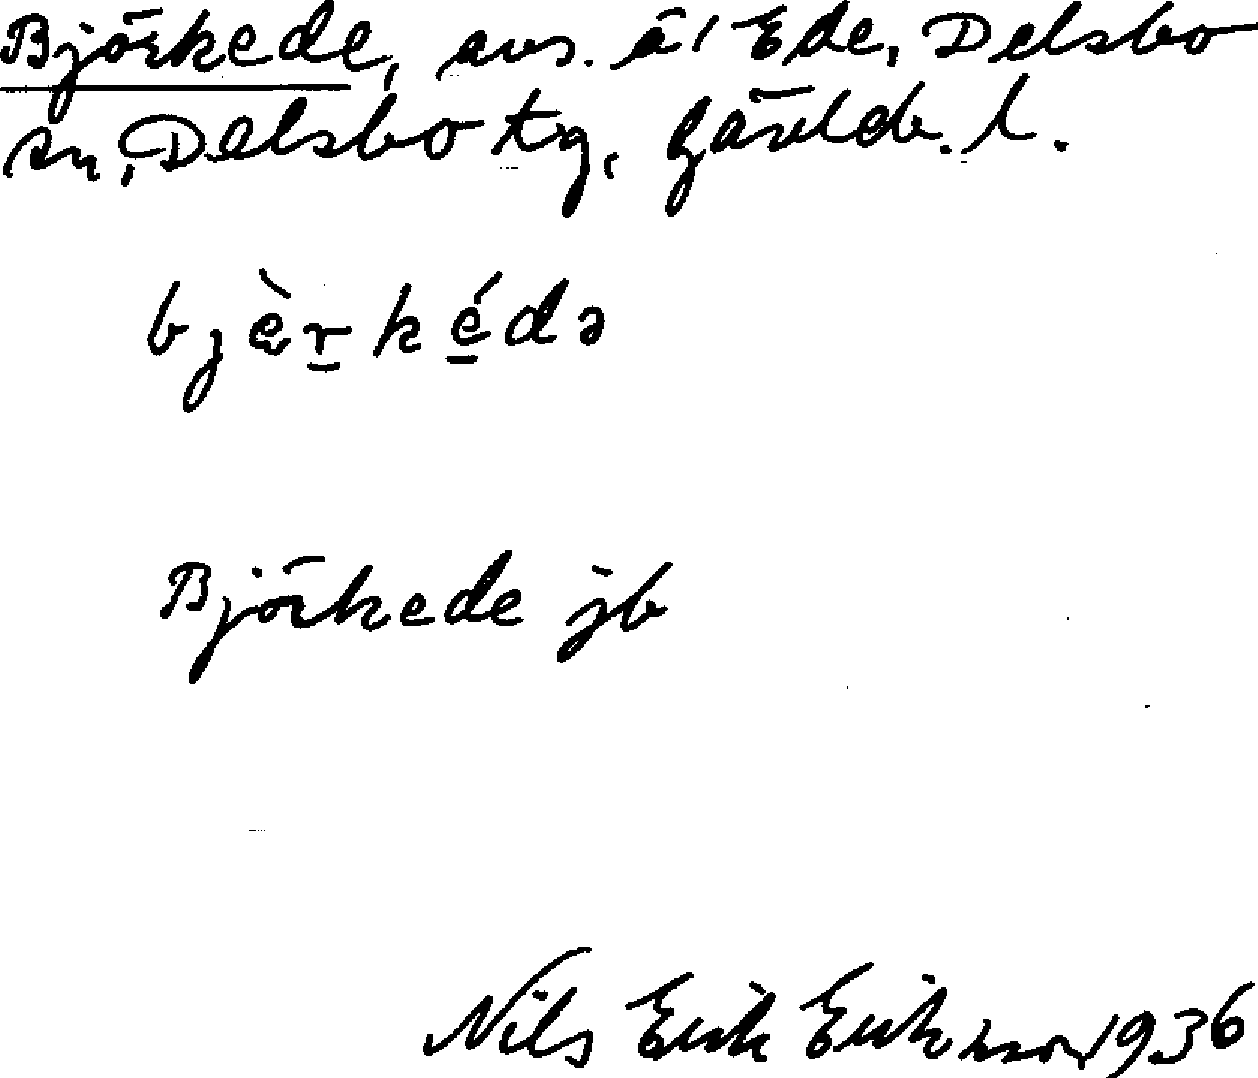 Björkede, avs. å 1 Ede, Delsbo
sn, Delsbo tg, Gävleb. l.
bjèr̲ké̲də
Björkede jb
Nils Erik Eriksson 1936